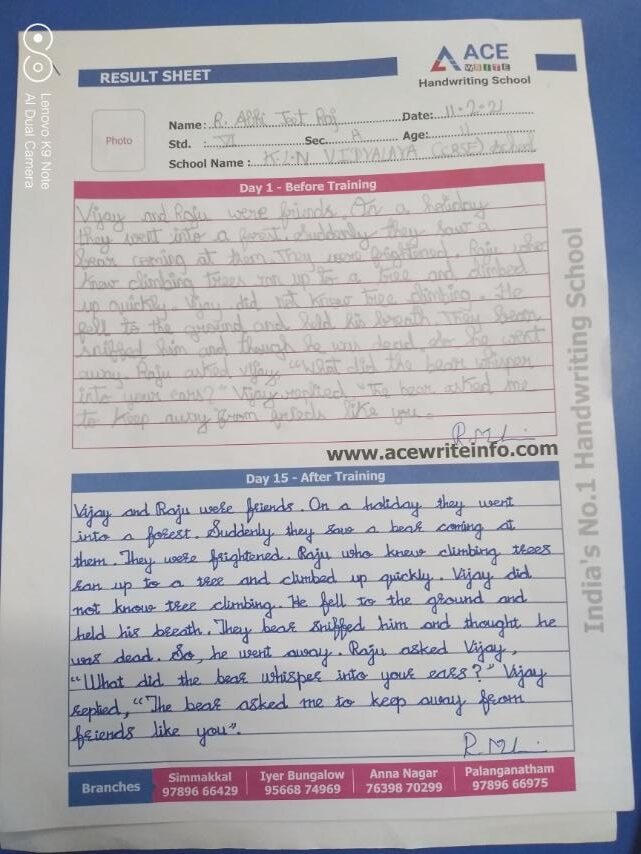 RESULT SHEET
ACE
WRITE
Handwriting School
Photo
Name: R. Abhi Jeet Raj Date: 11-2-21
Std. : VI Sec. A Age: 11
School Name : K.J.N VIDYALAYA (CBSE) School
Day 1 - Before Training
Vijay and Raju were friends. On a holiday
they went into a forest. Suddenly they saw a
bear coming at them. They were frightened. Raju who
knew climbing trees ran up to a tree and climbed
up quickly. Vijay did not know tree climbing. He
fell to the ground and held his breath They bear
sniffed him and though he was dead. So he went
away. Raju asked vijay "What did the bear whisper
into your ears?" Vijay replied "The bear asked me
to keep away from frieds like you.
www.acewriteinfo.com
Day 15 - After Training
Vijay and Raju were friends. On a holiday they went
into a forest. Suddenly they saw a bear coming at
them. They were frightened. Raju who knew climbing trees
ran up to a tree and climbed up quickly. Vijay did
not know tree climbing. He fell to the ground and
held his breath. They bear sniffed him and thought he
was dead. So, he went away. Raju asked Vijay,
"What did the bear whisper into your ears?" Vijay
replied, "The bear asked me to keep away from
friends like you".
Branches
Simmakkal
97896 66429
Iyer Bungalow
95668 74969
Anna Nagar
76398 70299
Palanganatham
97896 66975
India's No.1 Handwriting School
Lenovo K9 Note
AI Dual Camera